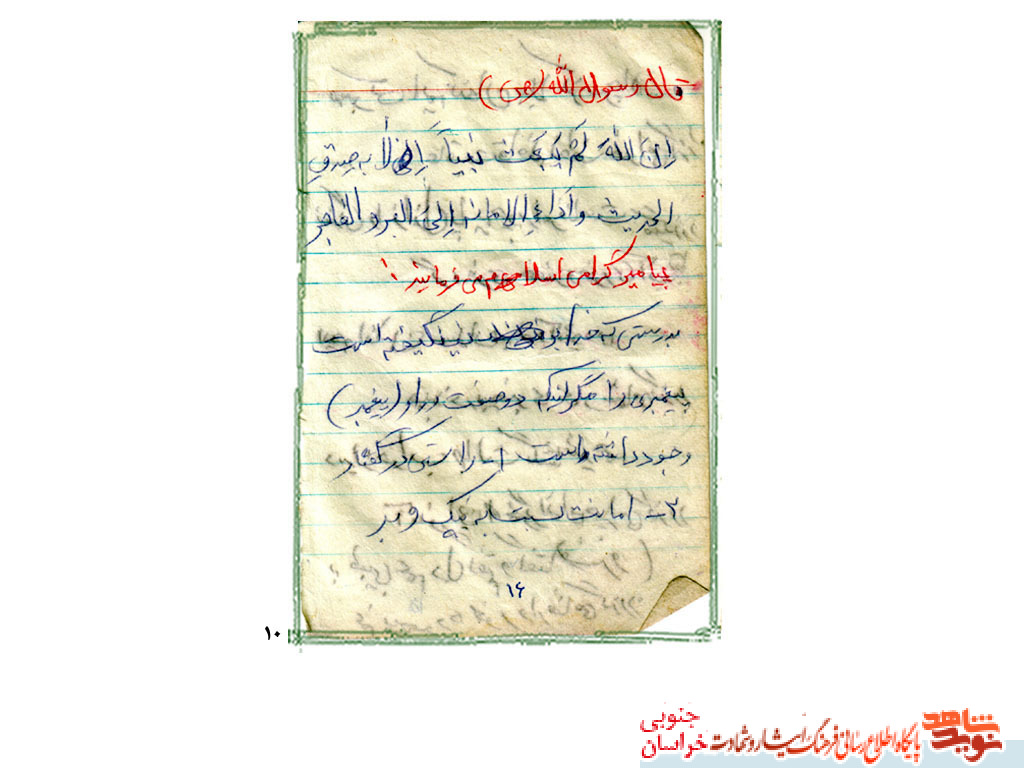 قال رسول الله (ص)
إن الله لم یبعث نبیاً إلا به صدق
الحدیث و أداء الامانه إلی البر و الفاجر
پیامبر گرامی اسلام می فرمایند:
بدرستی که خدا نیانگیخته است
پیغمبری را مگر اینکه دو صفت در او (پیغمبر)
وجود داشته است ۱- راستی در گفتار
۲- امانت نسبت به نیک و بد
۱۶
۱۰
نوید شاهد
پایگاه اطلاع رسانی فرهنگ ایثار و شهادت
خراسان جنوبی